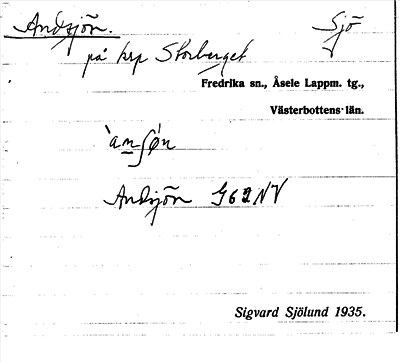 Andsjön. Sjö
på krp Storberget
Fredrika sn., Åsele Lappm. tg.,
Västerbottens län.
`an∫ø̀n
Andsjön G62NV
Sigvard Sjölund 1935.